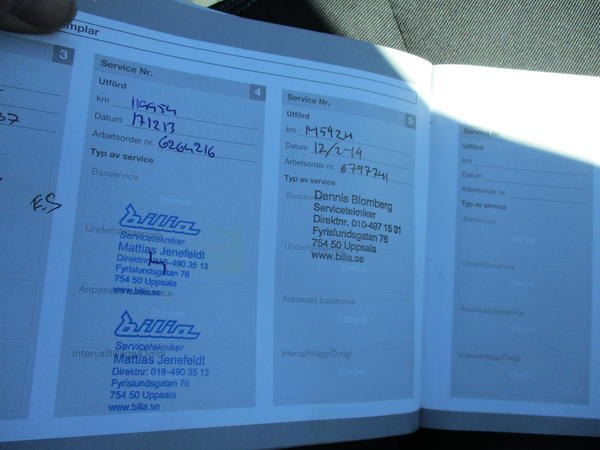 mplar
3
37
ES
Service Nr.
4
Utförd
km 119954
Datum 171213
Arbetsorder nr. 6264216
Typ av service
Basservice
bilia
Underhållsservice
Servicetekniker
Mattias Jenefeldt
Direktnr: 018-490 35 13
Fyrislundsgatan 76
754 50 Uppsala
Anpassad basservice
www.bilia.se
bilia
Servicetekniker
Intervalltillägg/Övrigt
Mattias Jenefeldt
Direktnr: 018-490 35 13
Fyrislundsgatan 76
754 50 Uppsala
www.bilia.se
Service Nr.
5
Utförd
km 145924
Datum 12/2-19
Arbetsorder nr. 6797741
Typ av service
Basservice
Dennis Blomberg
Servicetekniker
Direktnr. 010-497 15 31
Fyrislundsgatan 76
754 50 Uppsala
www.bilia.se
Anpassad basservice
Intervalltillägg/Övrigt
Service Nr.
Utförd
km
Datum
Arbetsorder nr.
Typ av service
Basservice
Underhållsservice
Anpassad basservice
Intervalltillägg/Övrigt